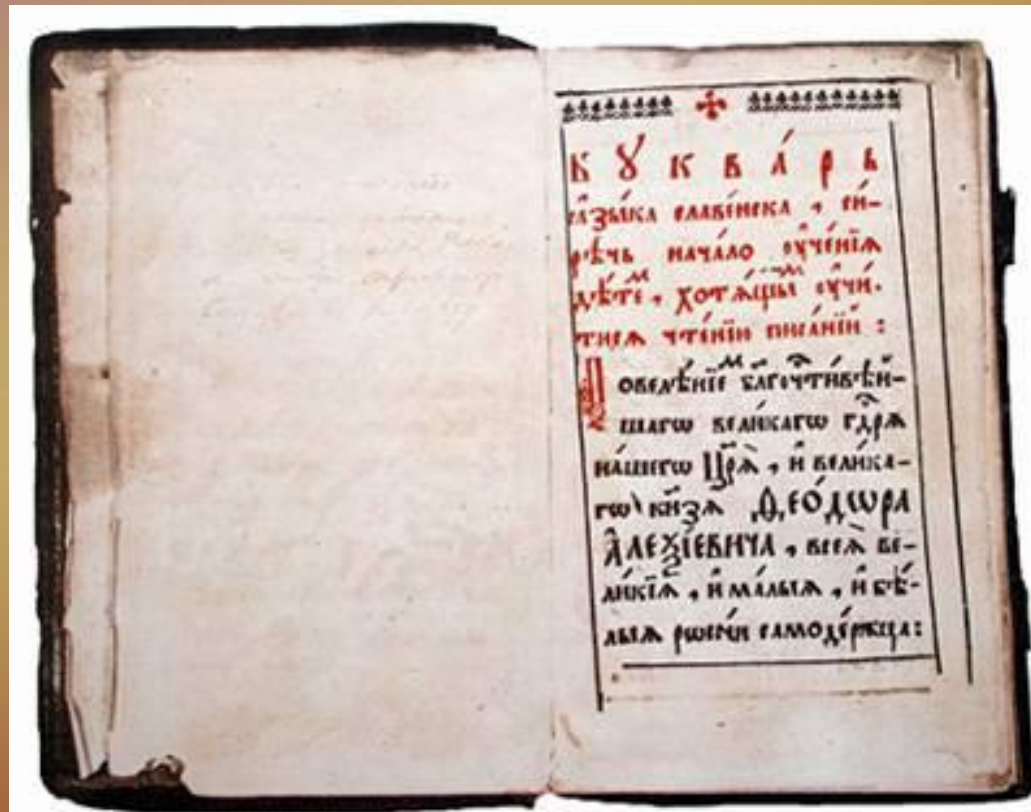 БꙋКВА́РЬ
ꙗ҆зы́ка славе́нска, си́-
рѣчь нача́ло ᲂу҆че́нїѧ
дѣ́теⷨ, хотѧ́щыⷨ ᲂу҆чи́-
тисѧ чте́нїю писа́нїй:
Повелѣ́нїеⷨ бл҃гочⷭ҇ти́вѣй-
шагѡ вели́кагѡ гдⷭ҇рѧ
на́шегѡ Цр҃ѧ̀, и҆ вели́ка-
гѡ кнѧ҃зѧ Ѳео́дѡра
А҆леѯі́евича, всеѧ̀ ве-
ли́кїѧ, и҆ ма́лыѧ, и҆ бѣ́-
лыѧ рѡсі́и самоде́ржца: